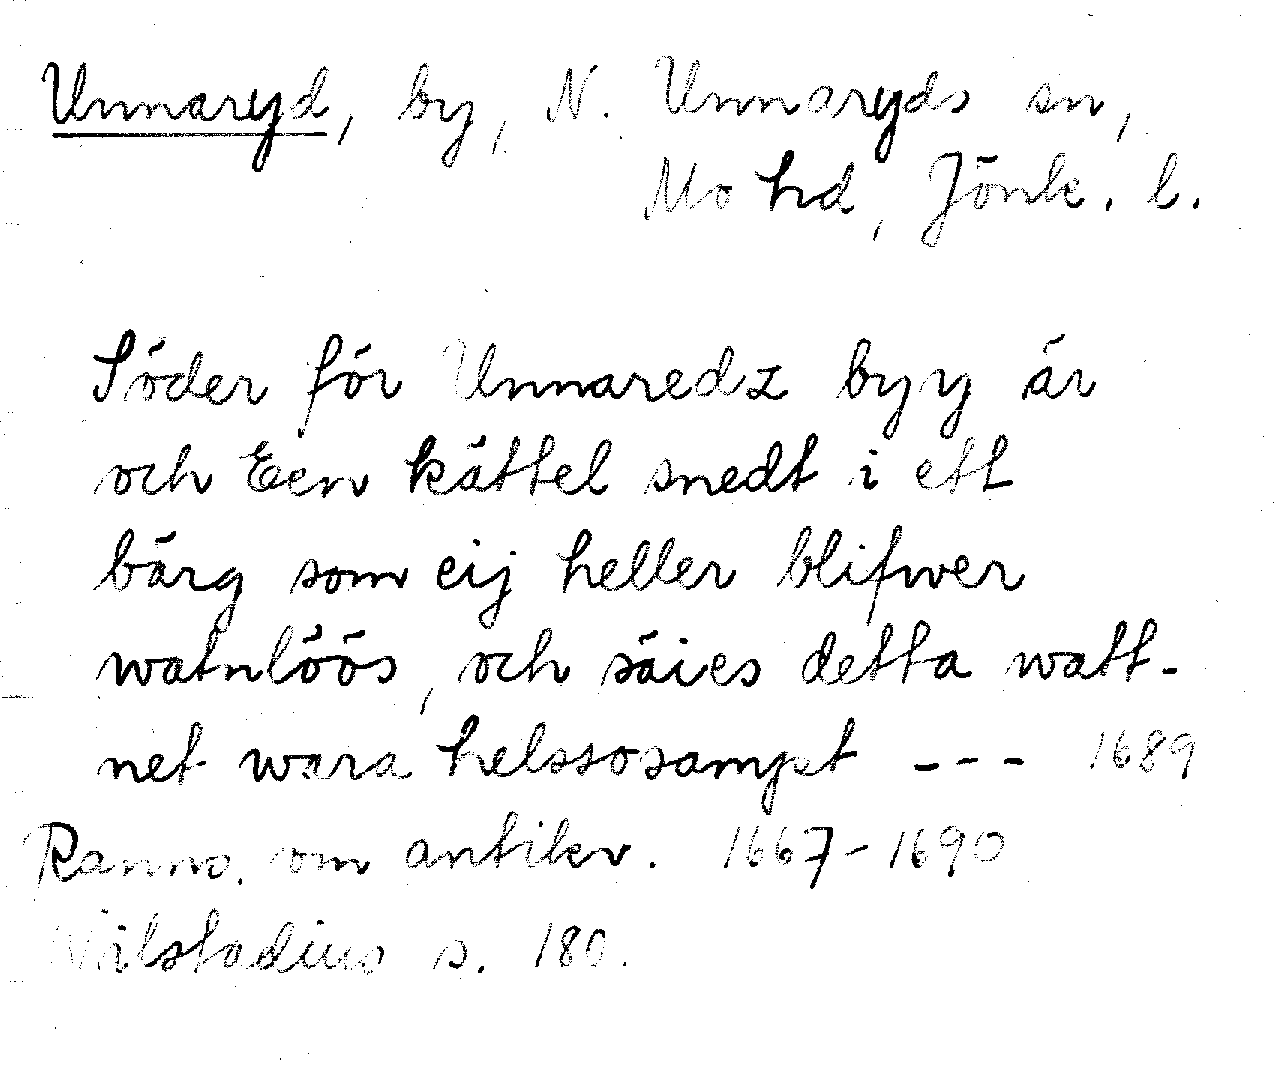 Unnaryd, by, N. Unnaryds sn,
Mo hd, Jönk. l.
Söder för Unnaredz byy är
och Een kättel smedt i ett
bärg som eij heller blifwer
watnlöös, och säies detta watt-
net wara helssosampt --- 1689
Ranns. om antikv. 1667-1690
Wilstadius s. 180.